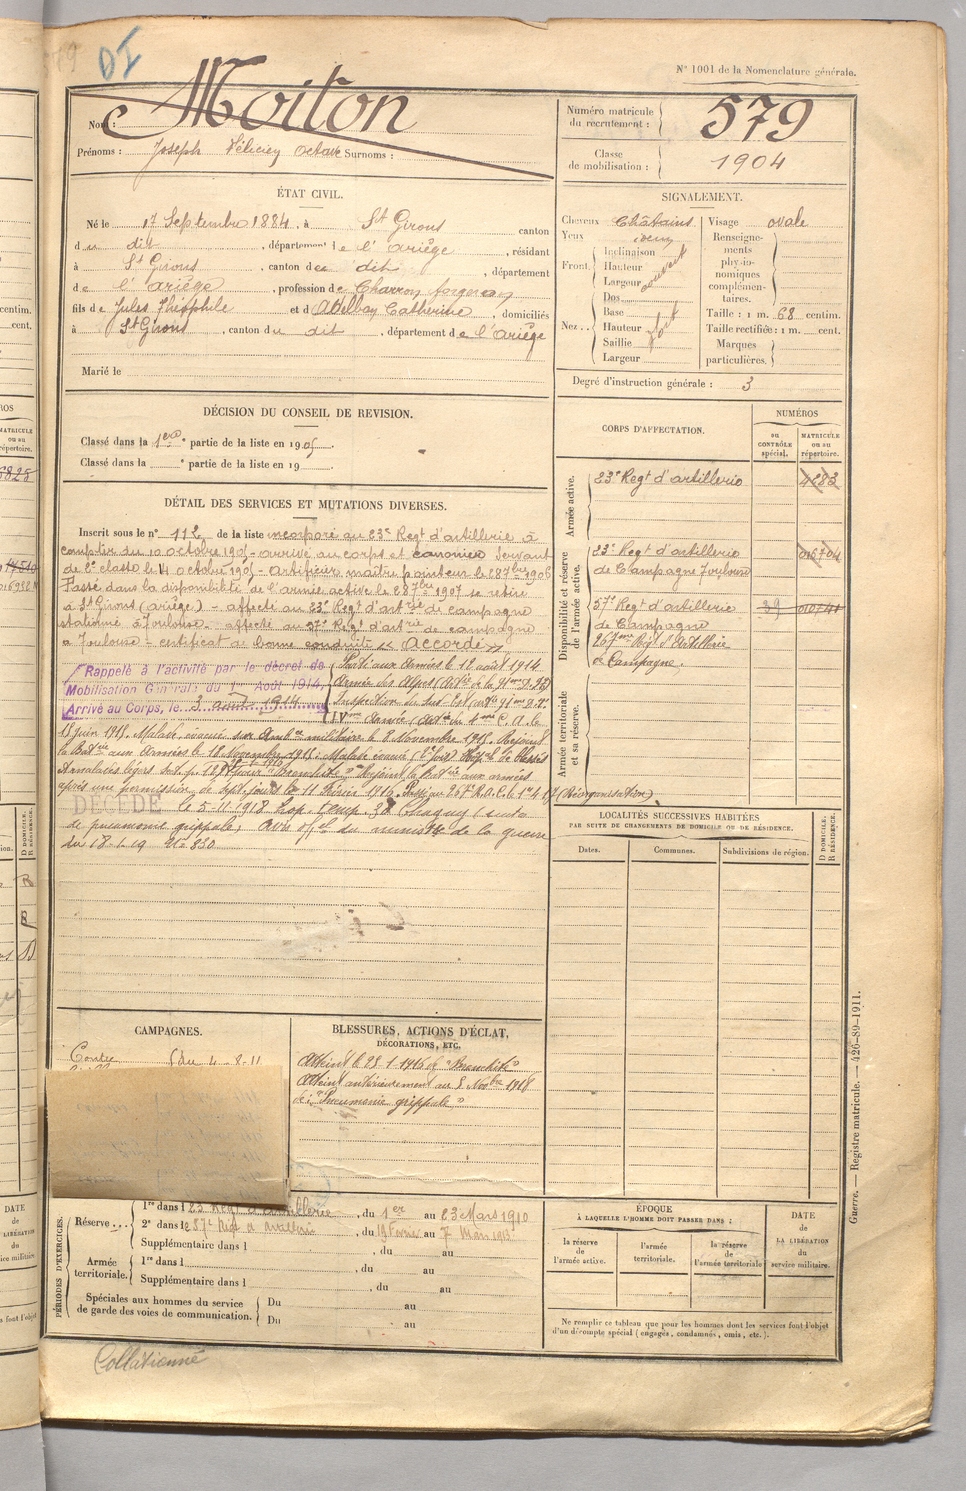 DI
N° 1001 de la Nomenclature générale.
Nom : Moiton
Prénoms : Joseph Félicien Octave Surnoms :
Numéro matricule du recrutement : 579
Classe de mobilisation : 1904
ÉTAT CIVIL.
Né le 17 Septembre 1884, à St Girons canton
du dit, département de l'ariège, résidant
à St Girons, canton de dit, département
de l'ariège, profession de Charron forgeron
fils de Jules Théophile et d' Catherine, domiciliés
à St Girons, canton du dit, département de l'ariège
Marié le
SIGNALEMENT.
Cheveux Châtains
Yeux
Front. Inclinaison
Hauteur
Largeur
couvert
Nez... Dos
Base
Hauteur
Saillie
Largeur
Visage ovale
Renseignements physionomiques complémentaires.
Taille : 1 m. 68 centim.
Taille rectifiée : 1 m. cent.
Marques particulières.
Degré d'instruction générale : 3
DÉCISION DU CONSEIL DE REVISION.
Classé dans la 1ere partie de la liste en 1905.
Classé dans la ° partie de la liste en 19 .
CORPS D'AFFECTATION.
NUMÉROS
au CONTRÔLE spécial.
MATRICULE ou au répertoire.
Armée active.
23e Regt d'artillerie 4283
Disponibilité et réserve de l'armée active.
23e Regt d'artillerie
de Campagne Toulouse
57e Regt d'artillerie
de Campagne
267me Reg. d'Artillerie
de Campagne.
Armée territoriale et sa réserve.
DÉTAIL DES SERVICES ET MUTATIONS DIVERSES.
Inscrit sous le n° 112 de la liste incorporé au 23e Regt d'artillerie à
compter du 10 octobre 1905 - arrivé au corps et canonnier servant
de 2e classe le octobre 1905 - Artificier maître pointeur le 28 7bre 1906
Passé dans la disponibilité de l'armée active le 28 7bre 1907 se retire
à St Girons (ariège) - affecté au 23e Regt d'artie de campagne
stationné à Toulouse - affecté au 57e Regt d'artie de campagne
à Toulouse - certificat de bonne conduite « Accordé »
Rappelé à l'activité par le décret de
Mobilisation Générale du 1er Août 1914,
Arrivé au Corps, le 3 août 1914
Parti aux Armées le 12 août 1914.
Armée des Alpes
Inspection du Sud-Est
IVme Armée
13 juin 1915. Malade, évacué sur militaire le 8 Novembre 1915. Rejoint
la Batrie aux Armées le 18 Novembre 1915. Malade évacué
et malades légers pour "Bronchite" Rejoint la Batrie aux armées
après une permission de sept jours le 11 Février 1916. Passé au 267e R.A.C. le 1er 4 17 (Réorganisation)
DÉCÉDÉ le 5-11-1918 hop. temp. 38 Chagny (suite
de pneumonie grippale) Avis offel du ministre de la guerre
du 18-1-19 N° 830
LOCALITÉS SUCCESSIVES HABITÉES
PAR SUITE DE CHANGEMENTS DE DOMICILE OU DE RÉSIDENCE.
Dates. Communes. Subdivisions de région. D DOMICILE. R RÉSIDENCE.
CAMPAGNES.
Contre du 4-8-11
BLESSURES, ACTIONS D'ÉCLAT,
DÉCORATIONS, ETC.
Atteint le 28-1-1916 de "Bronchite"
Atteint antérieurement au 5 Novbre 1918
de "Pneumonie grippale"
PÉRIODES D'EXERCICES.
Réserve...
1re dans l 23e Regt d'artillerie, du 1er au 23 Mars 1910
2e dans le 57e Regt d'artillerie, du 19 Février au 7 Mars 1913
Supplémentaire dans l , du au
Armée territoriale.
1re dans l , du au
Supplémentaire dans l , du au
Spéciales aux hommes du service de garde des voies de communication.
Du au
Du au
ÉPOQUE
À LAQUELLE L'HOMME DOIT PASSER DANS :
la réserve de l'armée active.
l'armée territoriale.
la réserve de l'armée territoriale
DATE de LA LIBÉRATION du service militaire.
Ne remplir ce tableau que pour les hommes dont les services font l'objet
d'un décompte spécial (engagés, condamnés, omis, etc.).
Guerre. — Registre matricule. — 426-89-1911.
Collationné